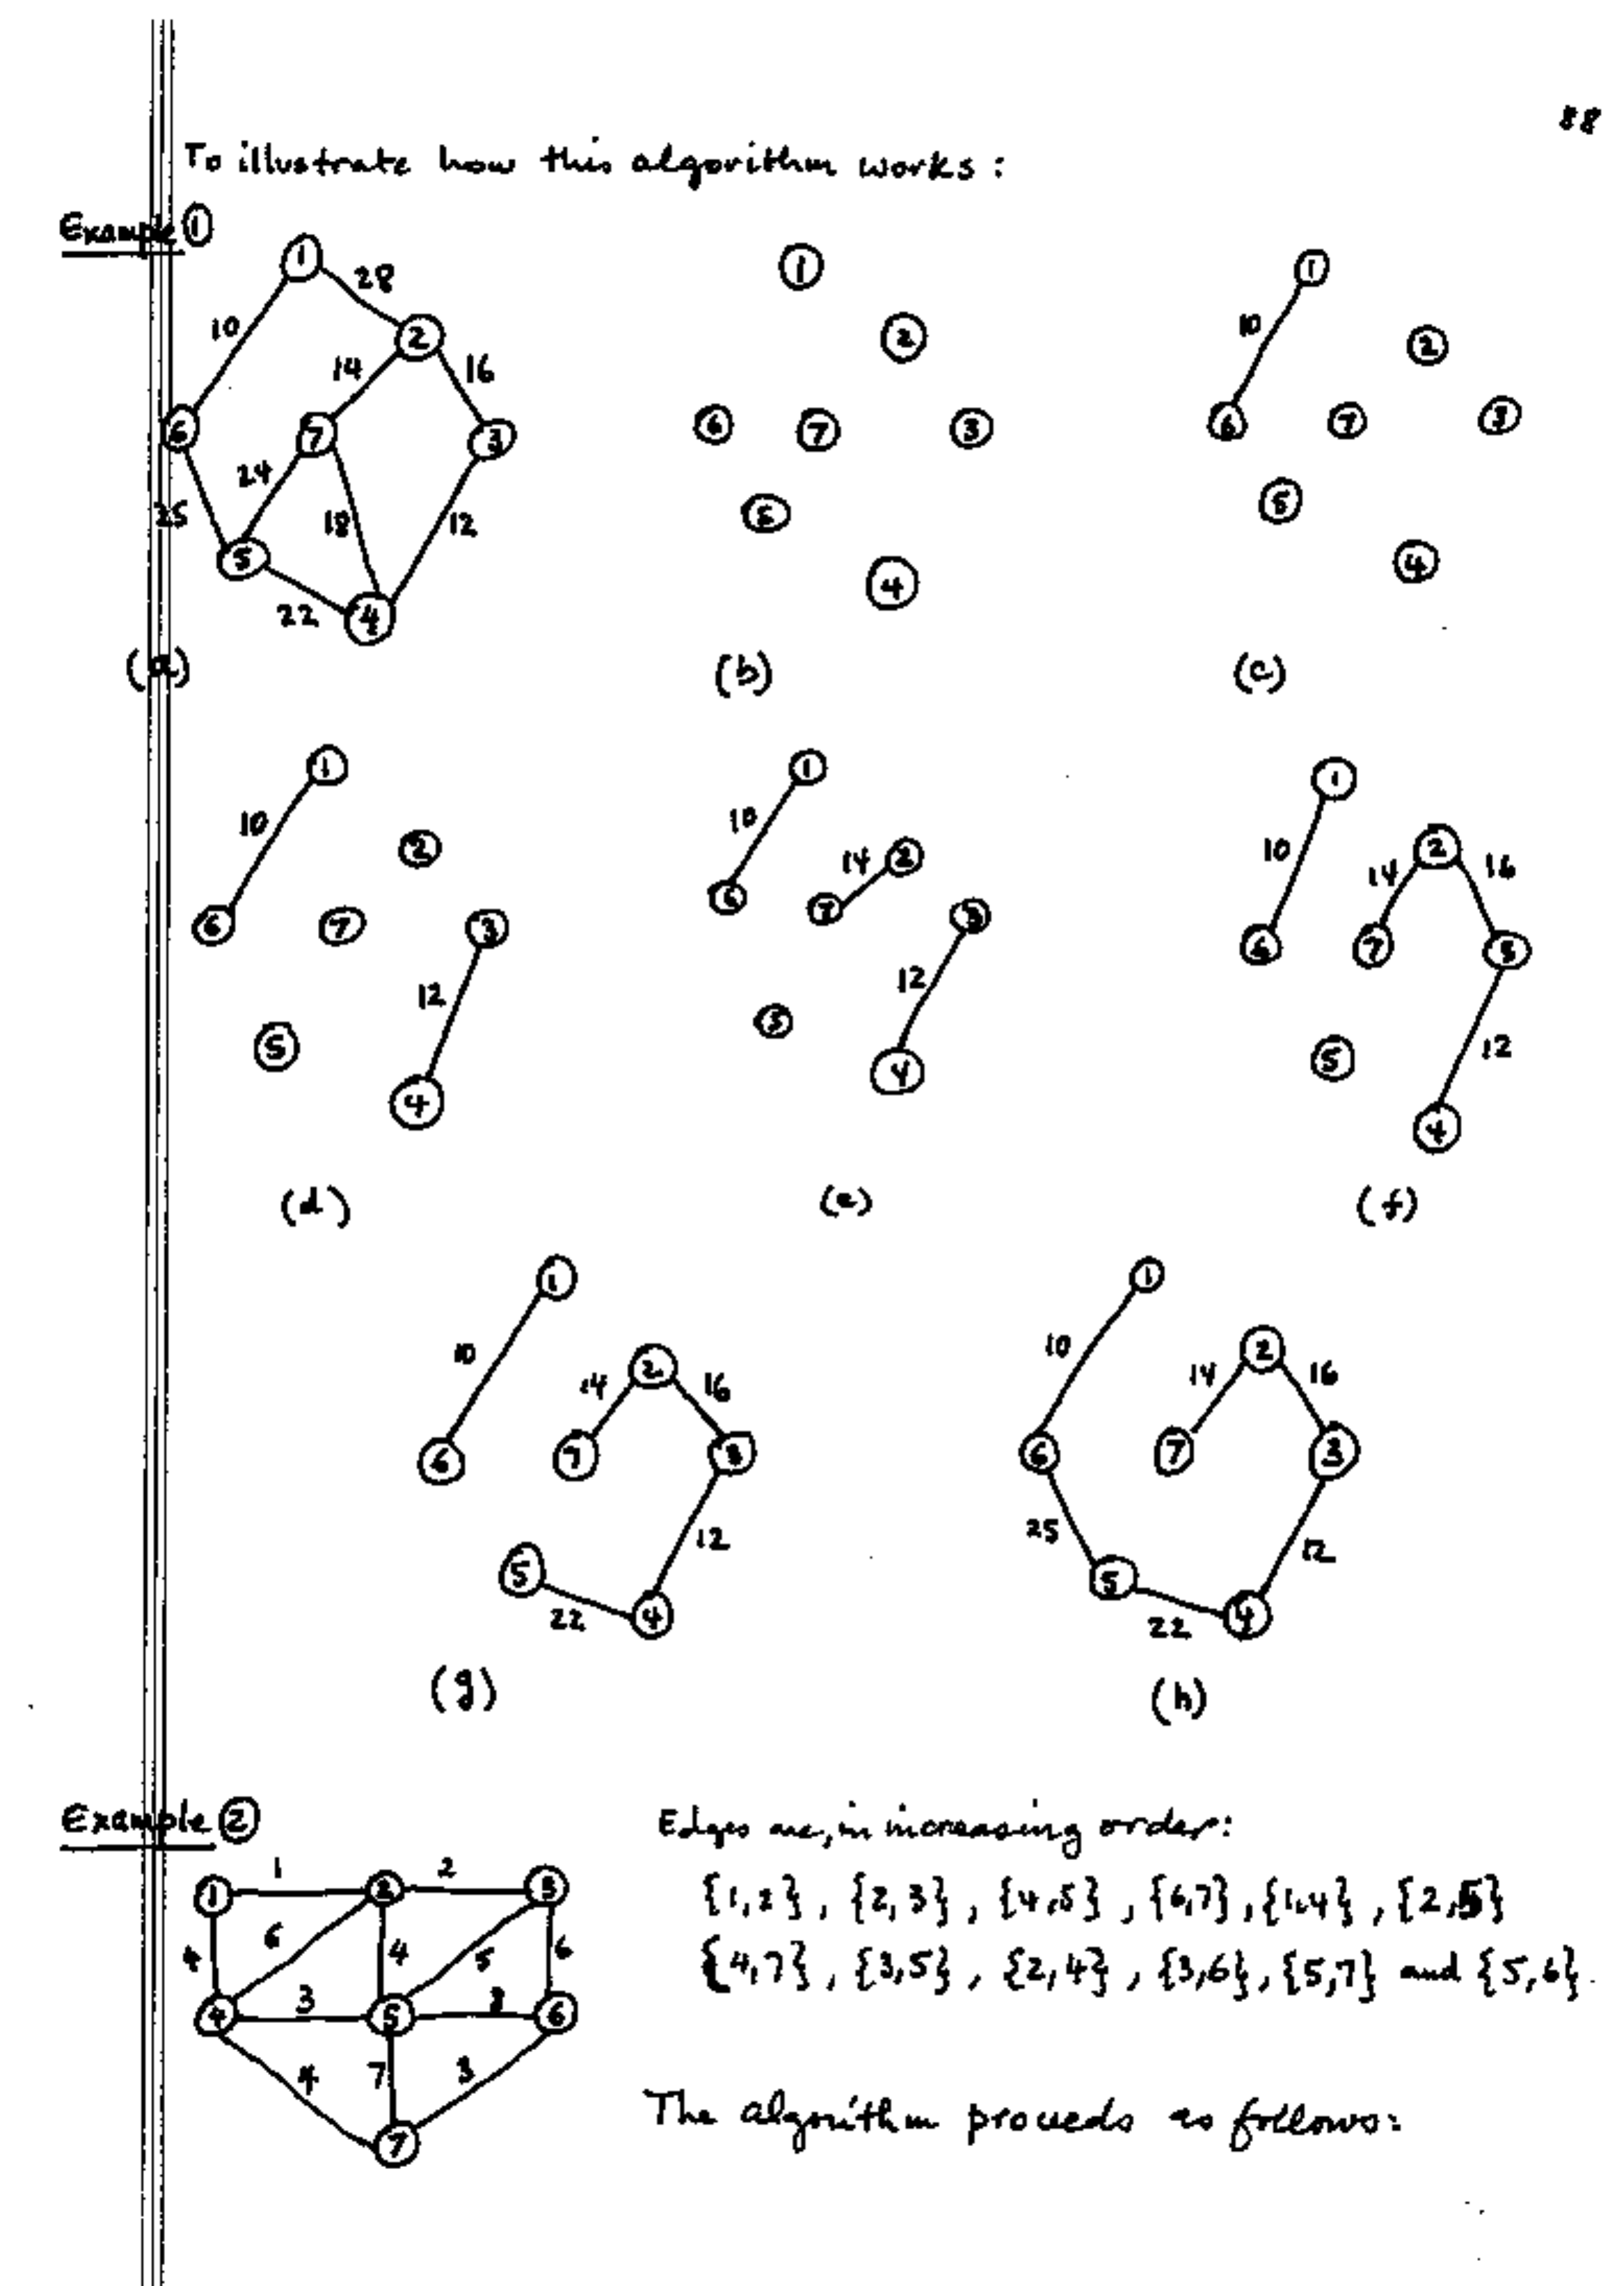 88
To illustrate how this algorithm works:
Example ①
1 28 10 2 14 16 6 7 3 24 25 18 12 5 22 4
(a)
1 2 6 7 3 5 4
(b)
1 10 2 6 7 3 5 4
(c)
1 10 2 6 7 3 12 5 4
(d)
1 10 14 2 6 7 3 12 5 4
(e)
1 10 2 14 16 6 7 3 5 12 4
(f)
1 10 2 14 16 6 7 3 12 5 22 4
(g)
1 10 2 14 16 6 7 3 25 12 5 22 4
(h)
Example ②
1 1 2 2 3
4 6 4 5 6
4 3 5 6
4 7 3
7
Edges are, in increasing order:
{1,2}, {2,3}, {4,5}, {6,7}, {1,4}, {2,5}
{4,7}, {3,5}, {2,4}, {3,6}, {5,7} and {5,6}.
The algorithm proceeds as follows: